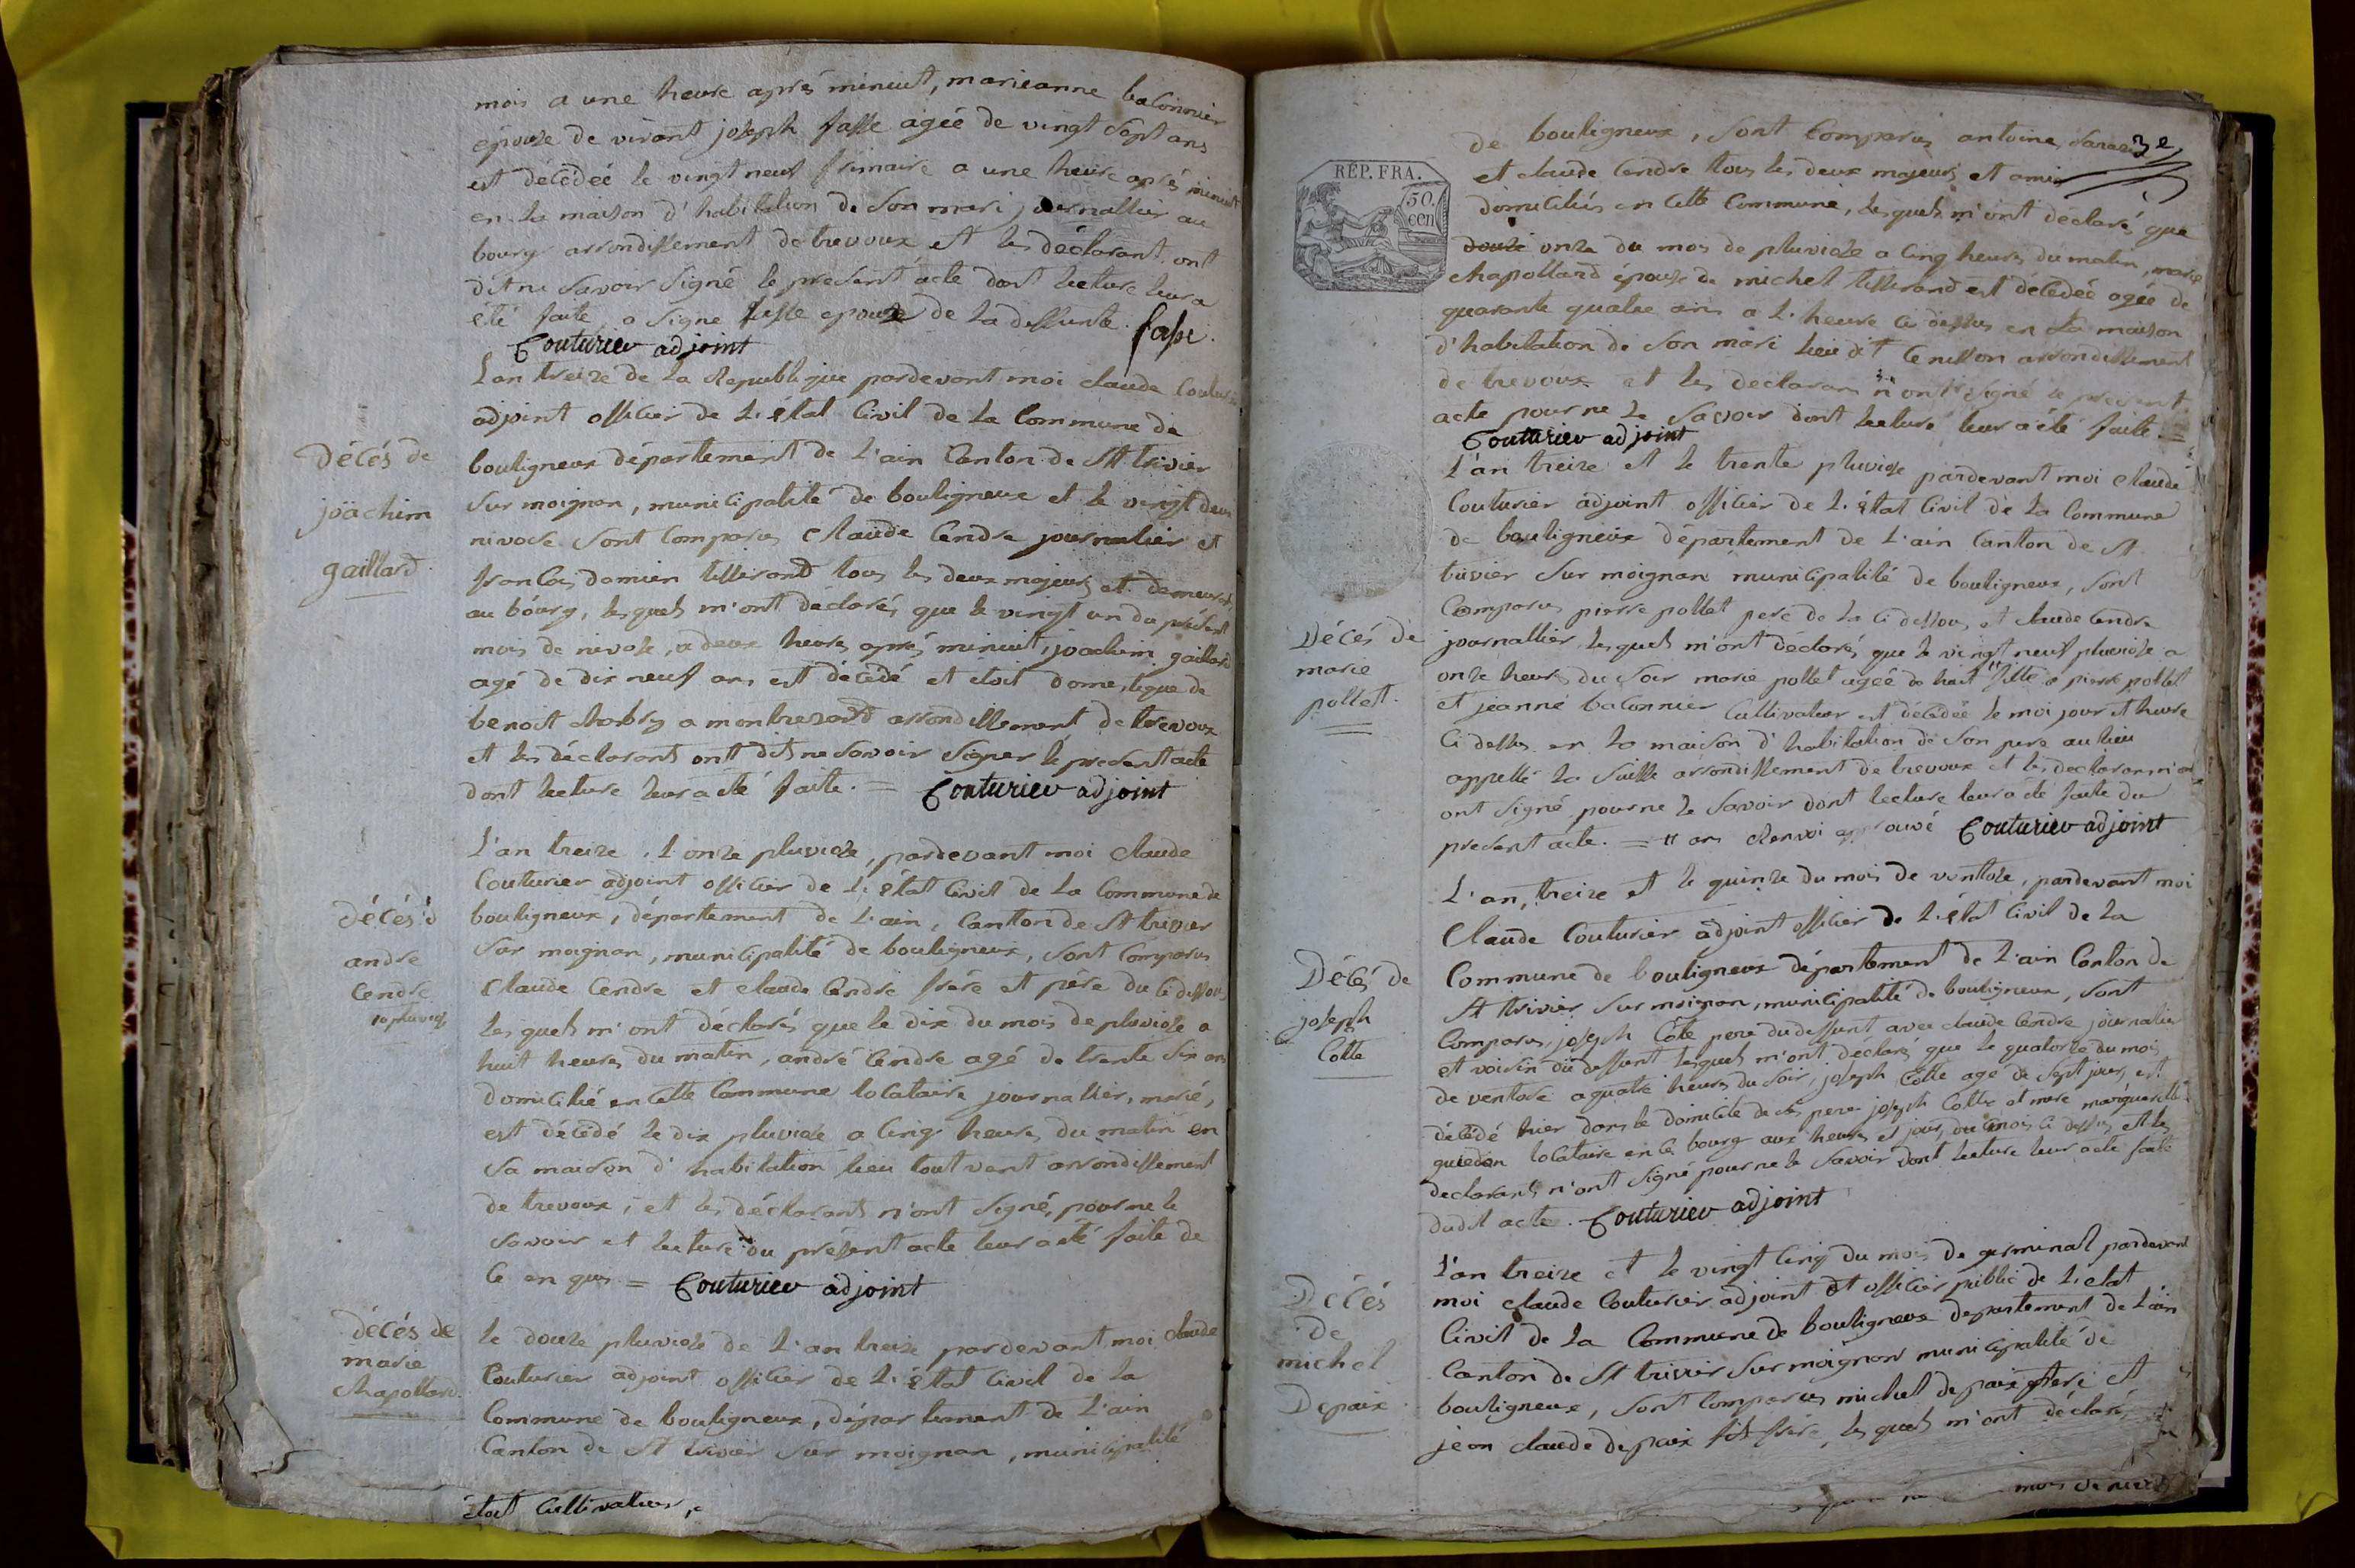 mois a une heure aprés minuit, marieanne baconnier
épouse de vivant joseph fasse agée de vingt sept ans
est décédée le vingt neuf frimaire a une heure aprés minuit
en la maison d'habitation de son mari journallier au
bourg arrondissement de trevoux et les déclarant ont
dit ne savoir signé le present acte dont lecture leur a
été faite, a signé fasse epoux de la deffunte. fasse.
Couturier adjoint
L'an treize de la Republique pardevant moi claude Couturier
adjoint officier de L'état Civil de la Commune de
Décés de
joachim
gaillard.
bouligneux département de L'ain Canton de St trivier
sur moignan, municipalité de bouligneux et le vingt deux
nivose sont Comparus Claude Cendre journalier et
francois damien tisserand tous les deux majeurs et demeurant
au bourg, lesquels m'ont déclarés que le vingt un du présent
mois de nivose, a deux heures aprés minuit, joachim gaillard
agé de dix neuf ans est décédé et étoit domestique de
benoit a arrondissement de trevoux
et les déclarants ont dit ne savoir signer le present acte
dont lecture leur a été faite. = Couturier adjoint
L'an treize, L'onze pluviose, pardevant moi Claude
Couturier adjoint officier de L'état Civil de la Commune de
décés d
andre
Cendre
10 pluviose
bouligneux, département de L'ain, Canton de St trivier
sur moignan, municipalité de bouligneux, sont Comparus
Claude Cendre et claude Cendre frére et pére du Ci dessous
lesquels m'ont déclarés que le dix du mois de pluviose a
huit heures du matin, andré Cendre agé de trente six ans
domicilié en Cette Commune locataire journallier, marié,
est décédé le dix pluviose a Cinq heures du matin en
sa maison d'habitation lieu tout vent arrondissement
de trevoux, et les déclarants n'ont signé, pour ne le
savoir et lecture du présent acte leur a été faite de
Ce en quis = Couturier adjoint
décés de
marie
Chapollard.
le douze pluviose de L'an treize pardevant moi claude
Couturier adjoint officier de L'état Civil de la
Commune de bouligneux, département de L'ain
Canton de St trivier sur moignan, municipalité
étoit Cultivateur,
de bouligneux, sont Comparus antoine
et claude Cendre tous les deux majeurs et amis
REP. FRA.
50.
cen
domiciliés en Cette Commune, lesquels m'ont déclarés que
douze onze du mois de pluviose a Cinq heures du matin, marie
chapollard épouse de michel tisserand est décédée agée de
quarante quatre ans a L'heure Ci dessus en la maison
d'habitation de son mari lieu dit arrondissement
de trevoux et les declarans n'ont signé le present
acte pour ne le savoir dont lecture leur a été faite. =
Couturier adjoint
L'an treize et le trente pluviose pardevant moi claude
Couturier adjoint officier de L'état Civil de la Commune
de bouligneux département de L'ain Canton de St
trivier sur moignan municipalité de bouligneux, sont
Décés de
marie
pollet.
Comparus pierre pollet pere de la Ci dessous et claude Cendre
journallier, lesquels m'ont déclarés que le vingt neuf pluviose a
onze heures du soir marie pollet agée de huit " fille a pierre pollet
et jeanne baconnier Cultivateur est décédée le moi jour et heure
Ci dessus en la maison d'habitation de son pere au lieu
appellé la suisse arrondissement de trevoux et les declarans n'ont
ont signé pour ne le savoir dont lecture leur a été faite du
present acte. = " ans Renvoi approuvé Couturier adjoint
L'an, treize et le quinze du mois de ventose, pardevant moi
Claude Couturier adjoint officier de L'état Civil de la
Décés de
joseph
Cotte
Commune de bouligneux département de L'ain Canton de
St trivier sur moignan, municipalité de bouligneux, sont
Comparus, joseph Côte pere du deffunt avec claude Cendre journalier
et voisin du deffunt lesquels m'ont déclarés que le quatorze du mois
de ventose a quatre heures du soir, joseph Cotte agé de sept jours, est
décédé hier dans le domicile de pere joseph Cotte et mere marguerite
locataire en Ce bourg aux heures et jours, du mois Ci dessus, et les
declarants n'ont signé pour ne le savoir dont lecture leur a été faite
dudit acte. Couturier adjoint
Décés
de
michel
Depaix.
L'an treize et le vingt Cinq du mois de germinal pardevant
moi claude Couturier adjoint et officier public de L'etat
Civil de la Commune de bouligneux departement de L'ain
Canton de St trivier sur moignan municipalité de
bouligneux, sont Comparus michel depaix pere et
jean claude depaix frére, lesquels m'ont déclarés
mois